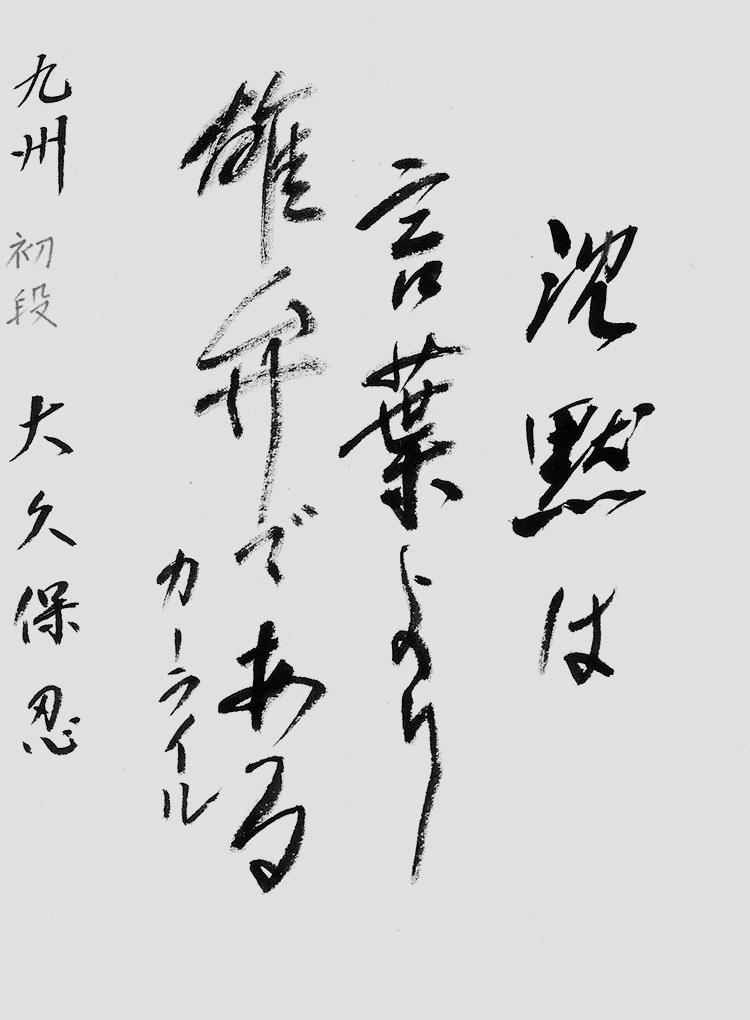 沈黙は
言葉より
雄弁である
カーライル
九州 初段 大久保 忍